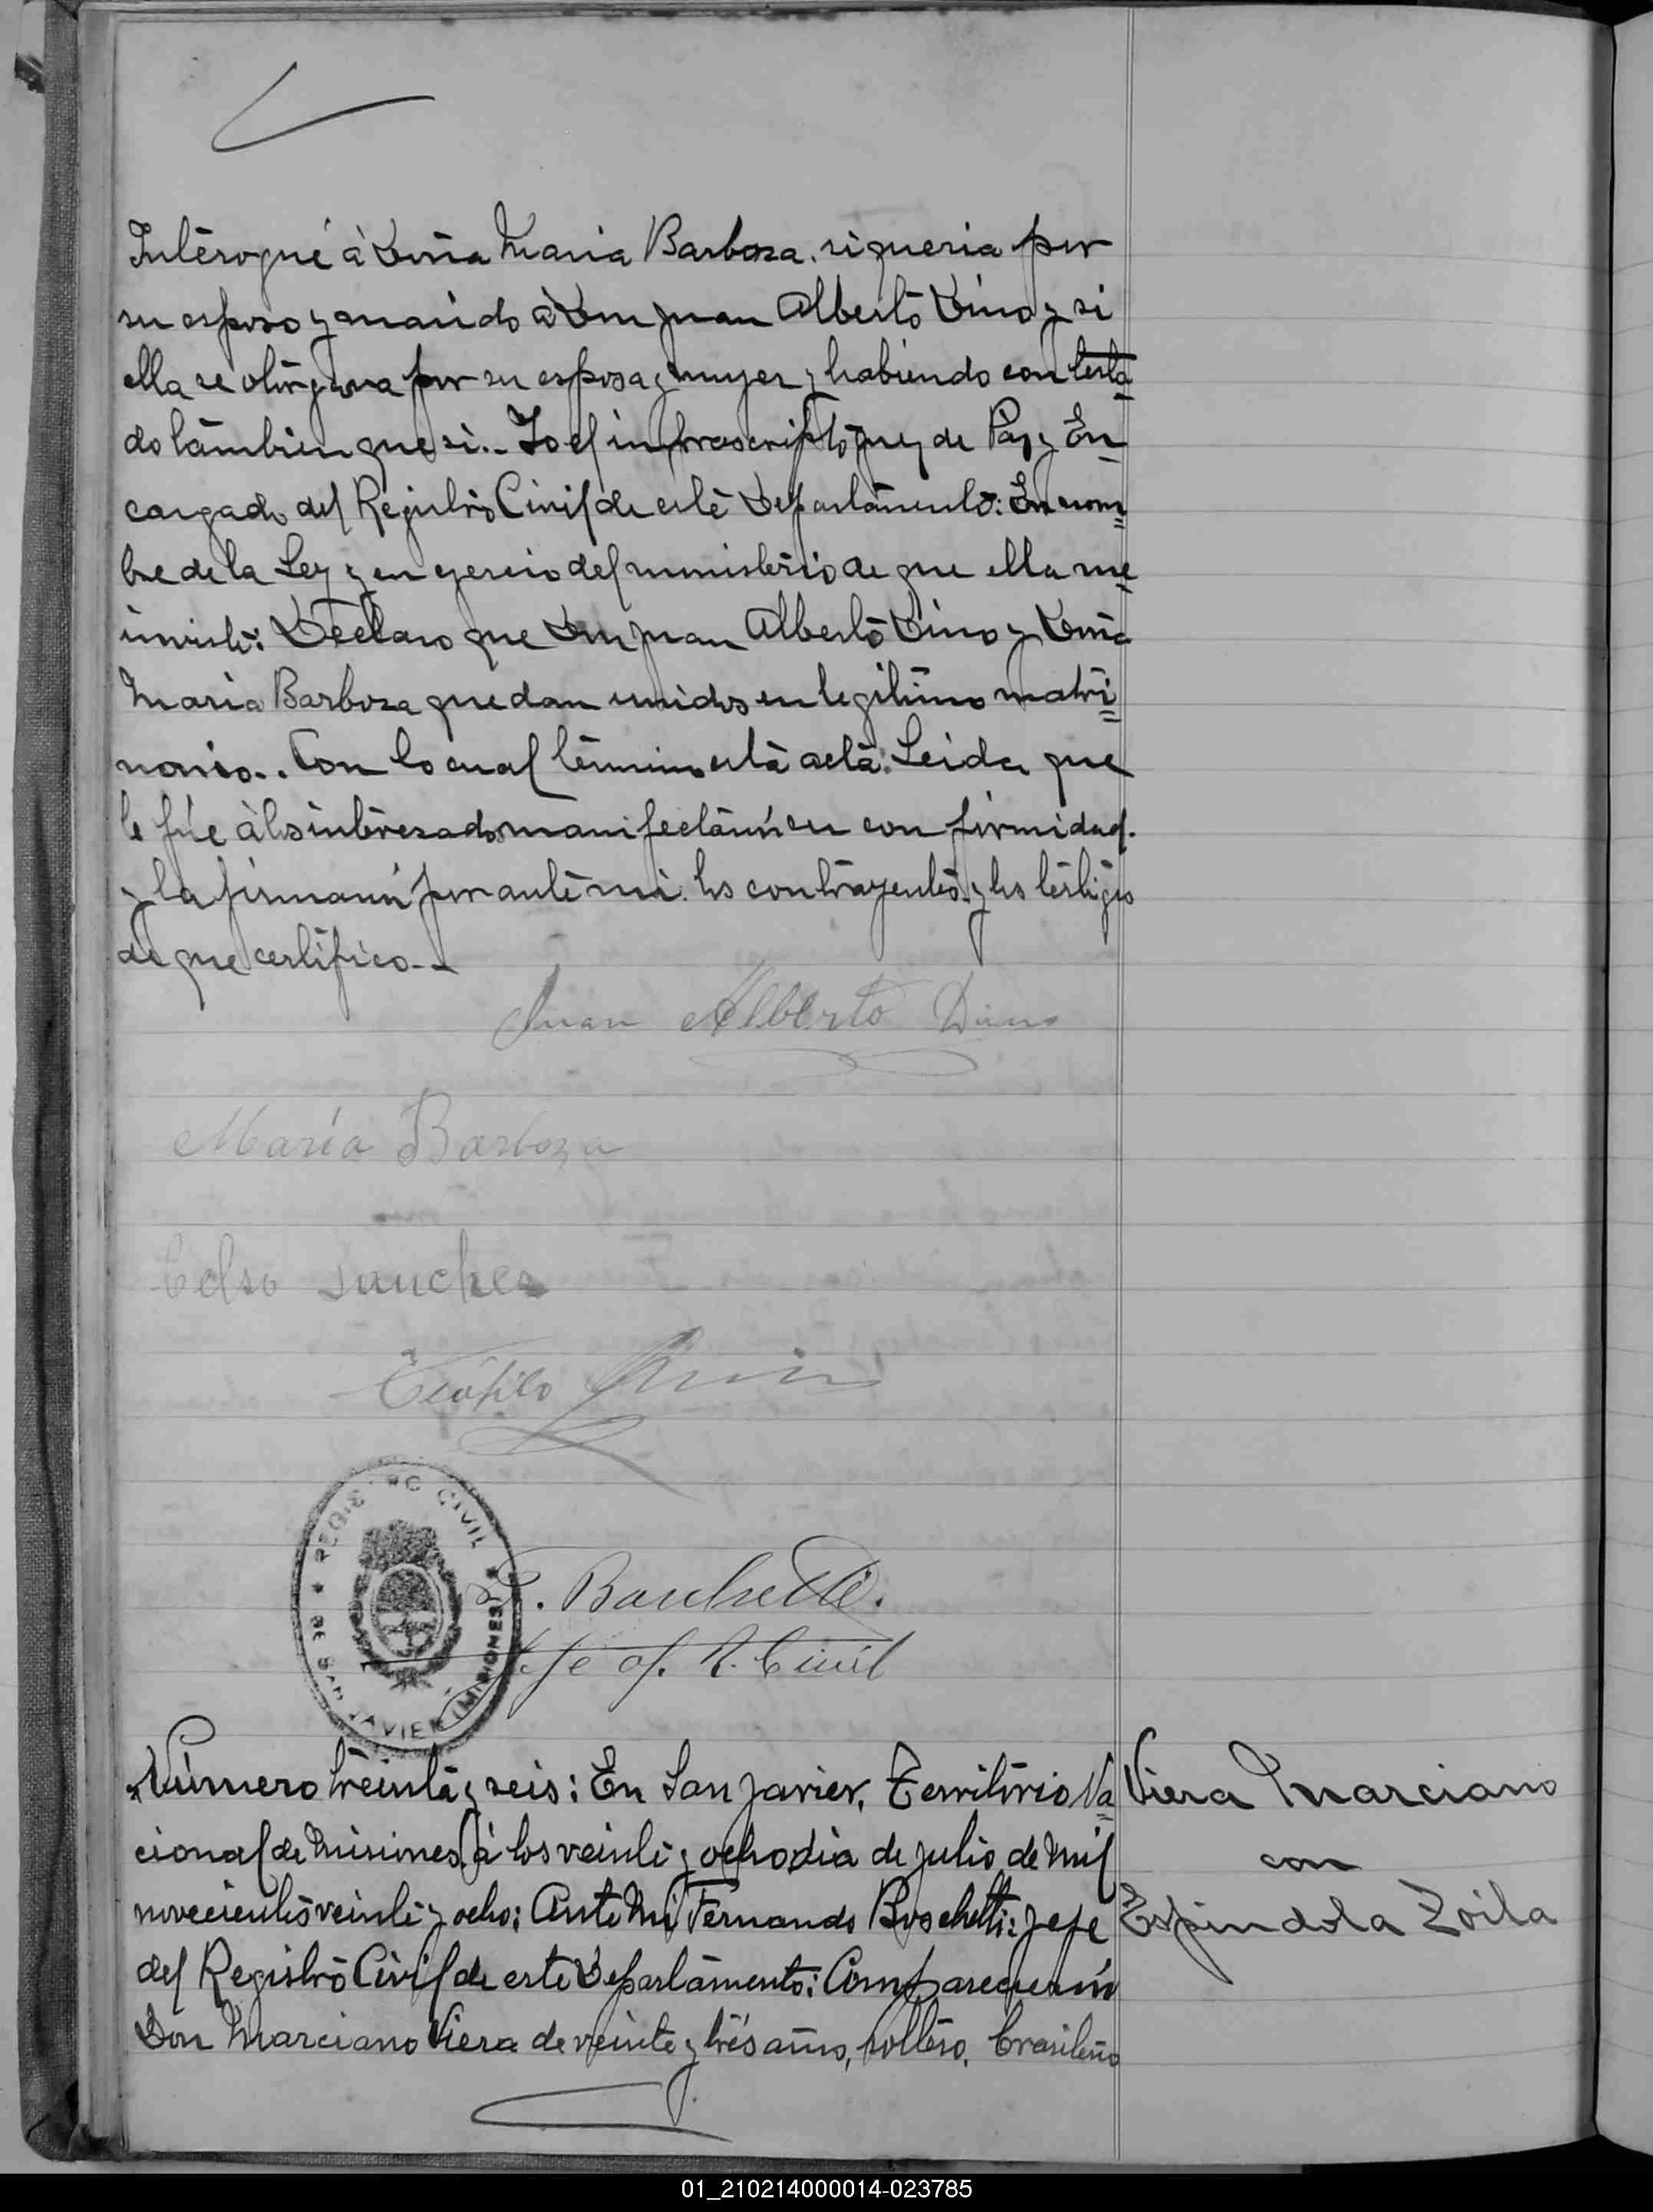 Interogué à Doña Maria Barboza. si queria por
su esposo y marido à Don Juan Alberto Dino y si
ella se otorgava por su esposa y muger y habiendo contesta
do tambien que si.. Yo el infrascripto Juez de Paz y En
cargado del Registro Civil de este Departamento: En nom
bre de la Ley y en ejercio del ministerio de que ella me
inviste: Declaro que Don Juan Alberto Dino y Doña
Maria Barboza quedan unidos en legitimo matri
nonio.. Con lo cual termino esta acta: Leida que
le fúe à los interezados manifectarón su conformidad.
y la firmarón por ante mi. los contrayentes y los testigos
de que certifico..
Juan Alberto Dino
María Barboza
Celso Sanchez
Teófilo
F. Boschetti.
Jefe of. R. Civil
REGISTRO CIVIL
DE SAN JAVIER (MISIONES)
Número treinta y seis: En San Javier, Territorio Na
cional de Misiones, à los veinte y ocho dia de Julio de Mil
novecientos veinte y ocho: Ante Mi Fernando Boschetti: Jefe
del Registro Civil de este Departamento: Comparecierón
Don Marciano Viera de veinte y trés años, soltero, brasileño
Viera Marciano
con
Espindola Zoila
01_210214000014-023785